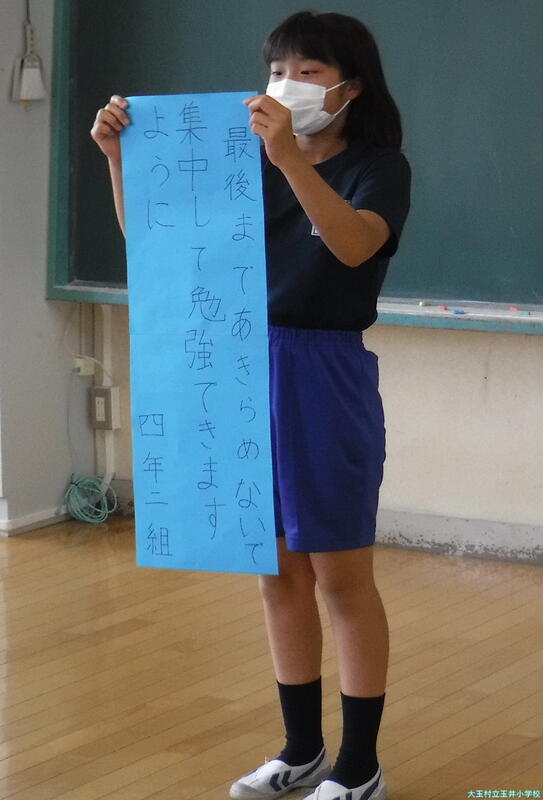 最後まであきらめないで
集中して勉強てきます
ように
四年二組
大玉村立玉井小学校